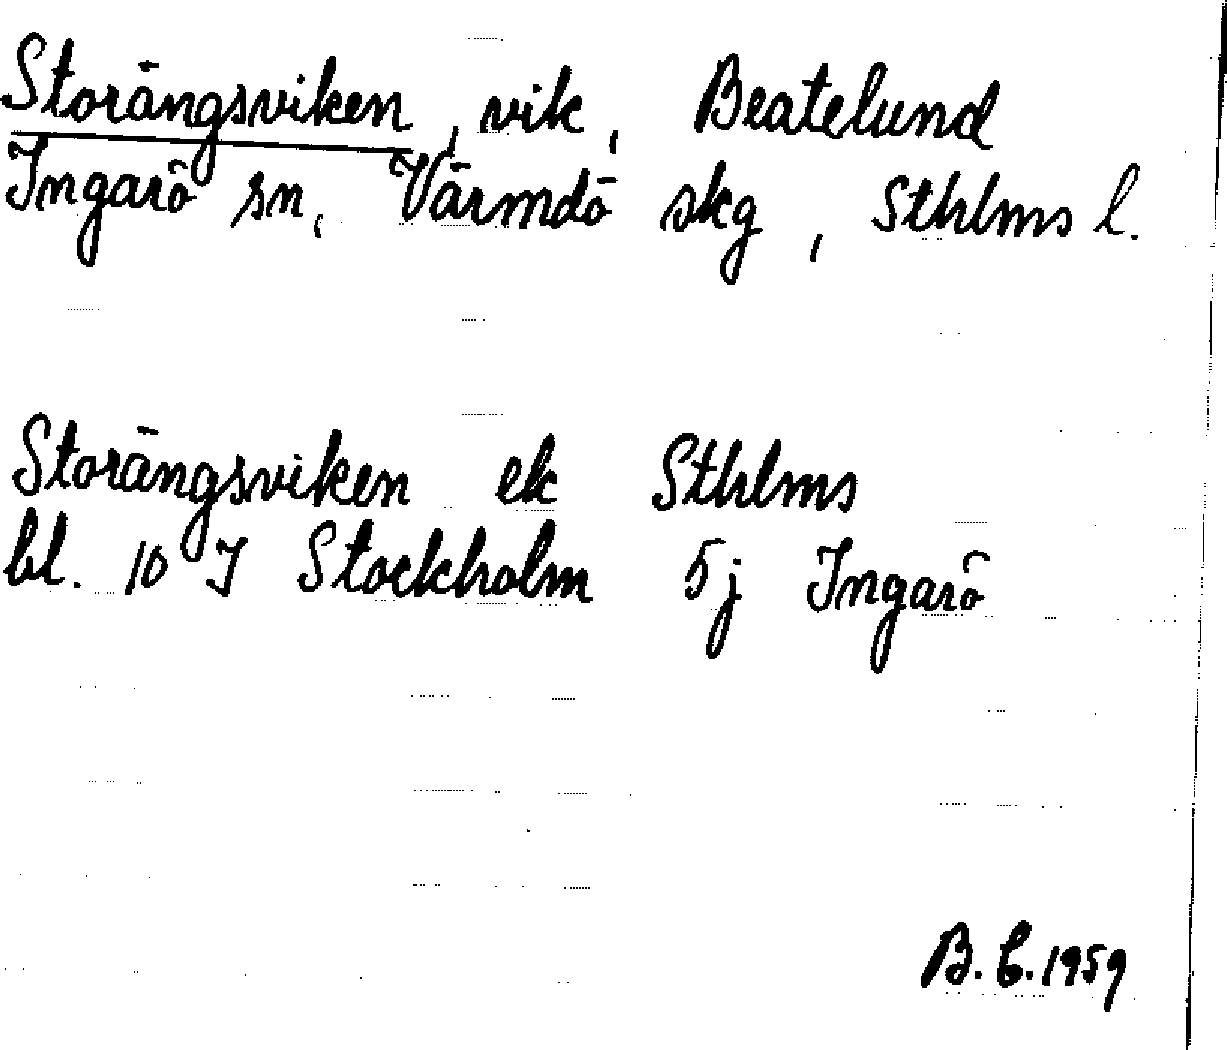 Storängsviken, vik, Beatelund
Ingarö sn, Värmdö skg, Sthlms l.
Storängsviken ek Sthlms
bl. 10 I Stockholm 5j Ingarö
B. C. 1959